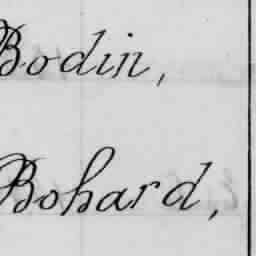 Bodin,
Bohard,